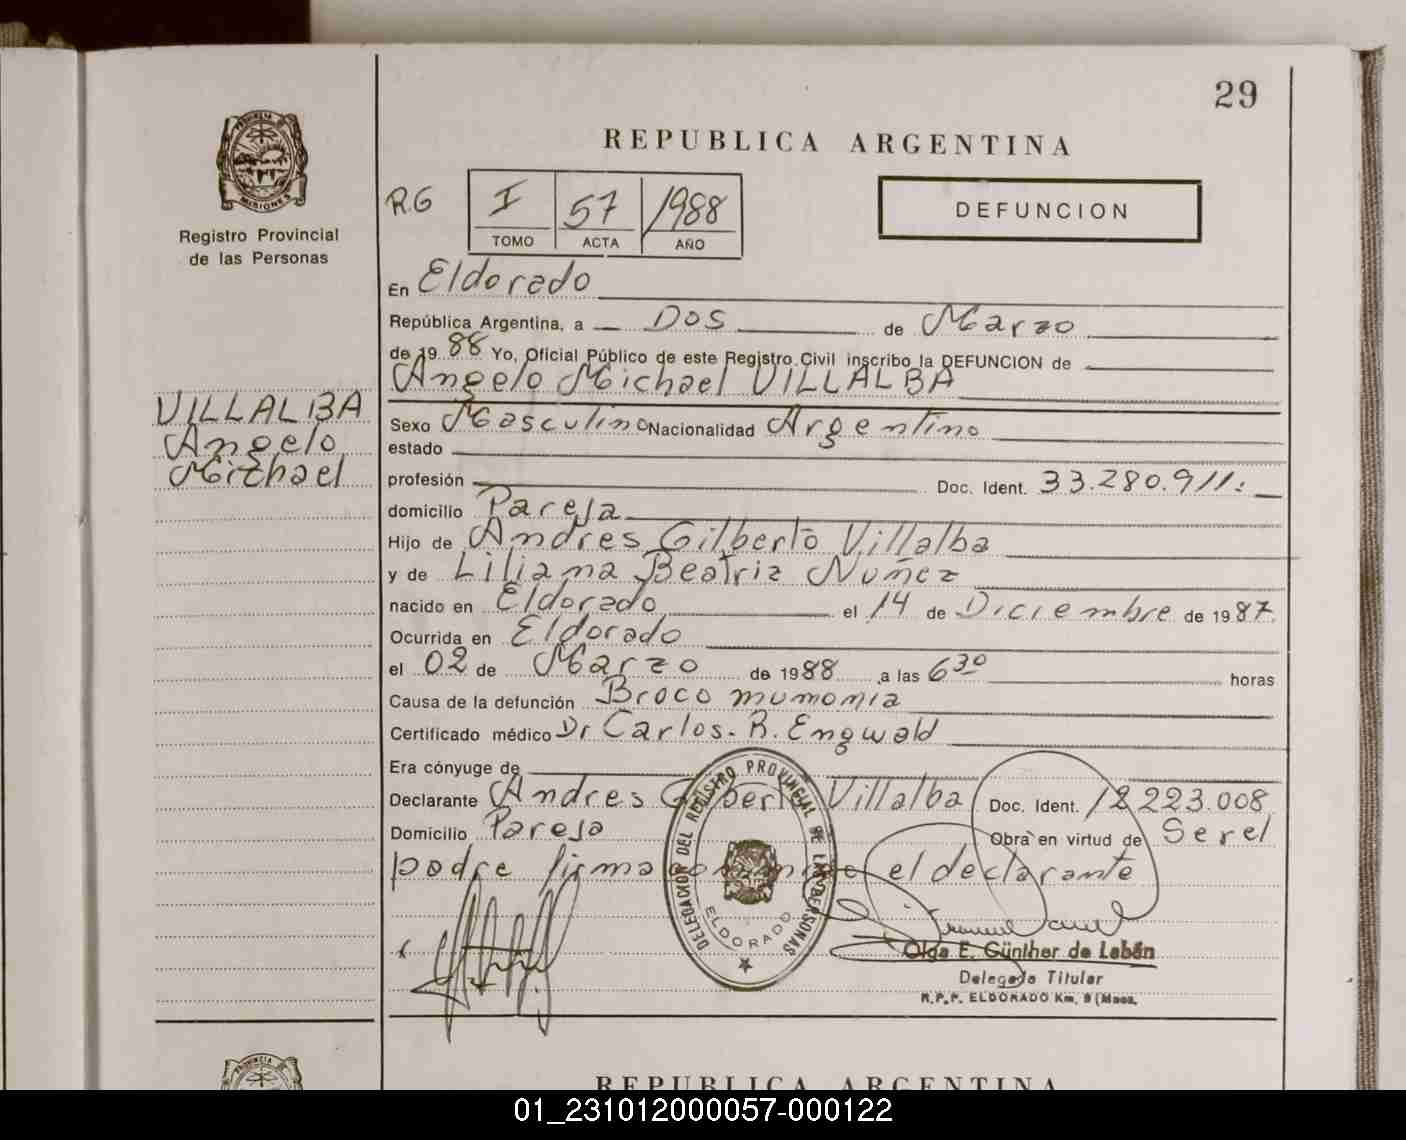 29
PROVINCIA DE
MISIONES
Registro Provincial
de las Personas
REPUBLICA ARGENTINA
R.G I 57 1988
TOMO ACTA AÑO
DEFUNCION
En Eldorado
República Argentina, a Dos de Marzo
de 1988 Yo, Oficial Público de este Registro Civil inscribo la DEFUNCION de
Angelo Michael VILLALBA
VILLALBA
Angelo
Michael
Sexo Masculino Nacionalidad Argentino
estado
profesión Doc. Ident. 33.280.911:
domicilio Pareja
Hijo de Andres Gilberto Villalba
y de Liliana Beatriz Nuñez
nacido en Eldorado el 14 de Diciembre de 1987.
Ocurrida en Eldorado
el 02 de Marzo de 1988 a las 6 30 horas
Causa de la defunción Bronco mumonia
Certificado médico Dr Carlos. R. Engwald
Era cónyuge de
Declarante Andres Gilberto Villalba Doc. Ident. 12223.008
Domicilio Pareja Obra en virtud de Serel
padre firma el declarante
DELEGACION DEL REGISTRO PROVINCIAL DE LAS PERSONAS
ELDORADO
Olga E. Günther de Labán
Delegada Titular
R.P.P. ELDORADO Km. 9 (Mnes.
PROVINCIA
REPUBLICA ARGENTINA
01_231012000057-000122